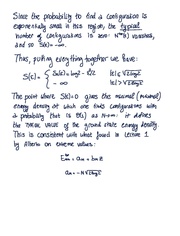 Since the probability to find a configuration is
exponentially small in this region, the typical
number of configurations is zero: N(ε) vanishes,
and so S(ε) = -∞.
Thus, putting everything together we have:
S(ε) = { S(ε) = log2 - ε²/2 |ε| < √2log2
-∞ |ε| > √2log2
The point where S(ε)=0 gives the minimal (maximal)
energy density at which one finds configurations with
a probability that is O(1) as N→∞: it defines
the value of the ground state energy density
This is consistent with what found in Lecture 1
by Alberto on extreme values:
= aₘ + bₘ z
aₘ = -N√2log2